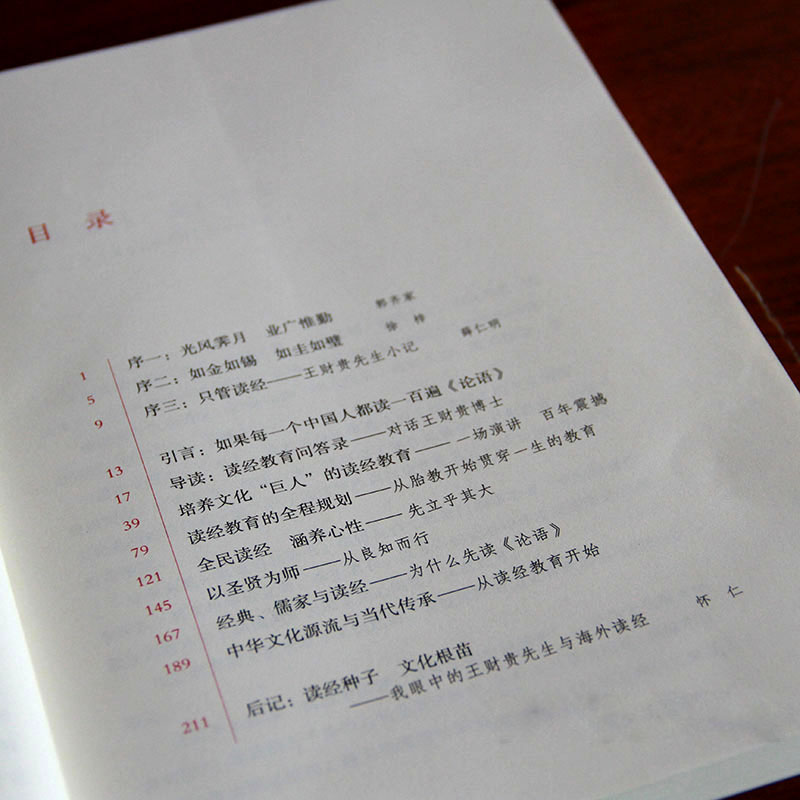 目 录
1 序一：光风霁月 业广惟勤 郭齐家
5 序二：如金如锡 如圭如璧 徐 梓
9 序三：只管读经——王财贵先生小记 薛仁明
13 引言：如果每一个中国人都读一百遍《论语》
17 导读：读经教育问答录——对话王财贵博士
39 培养文化“巨人”的读经教育——一场演讲 百年震撼
79 读经教育的全程规划——从胎教开始贯穿一生的教育
121 全民读经 涵养心性——先立乎其大
145 以圣贤为师——从良知而行
167 经典、儒家与读经——为什么先读《论语》
189 中华文化源流与当代传承——从读经教育开始
211 后记：读经种子 文化根苗
——我眼中的王财贵先生与海外读经 怀 仁